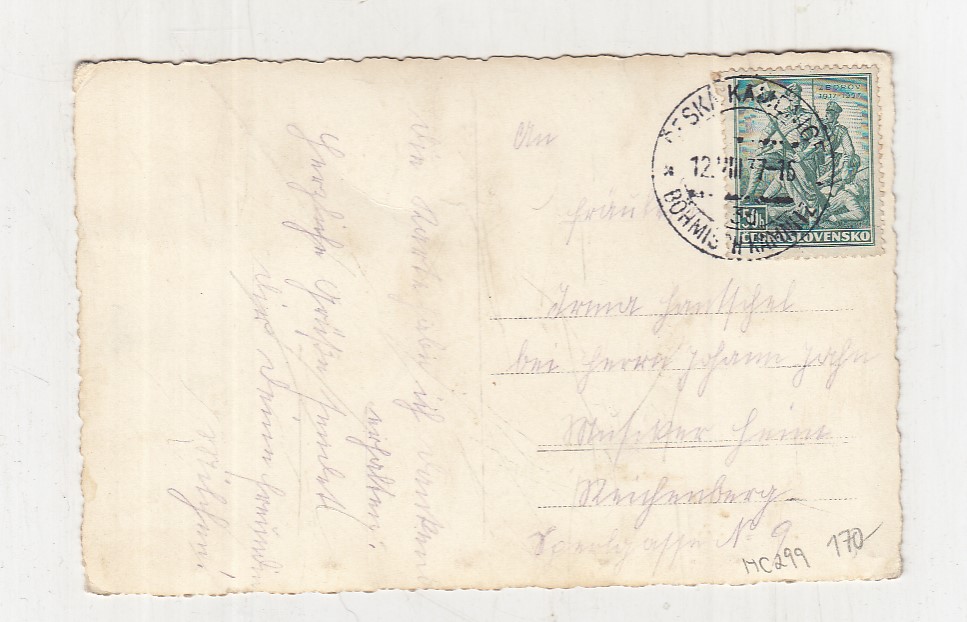 ČESKÁ KAMENICE
12.VIII.37-16
BÖHMISCH KAMNITZ
ZBOROV
1917-1937
50h
ČESKOSLOVENSKO
An
Fräulein
Irma Hantschel
bei Herrn Johann Jahn
Musiker Heim
Reichenberg
No 9.
Die Karte habe ich dankend
erhalten.
Herzliche Grüße sendet
MC299
170-